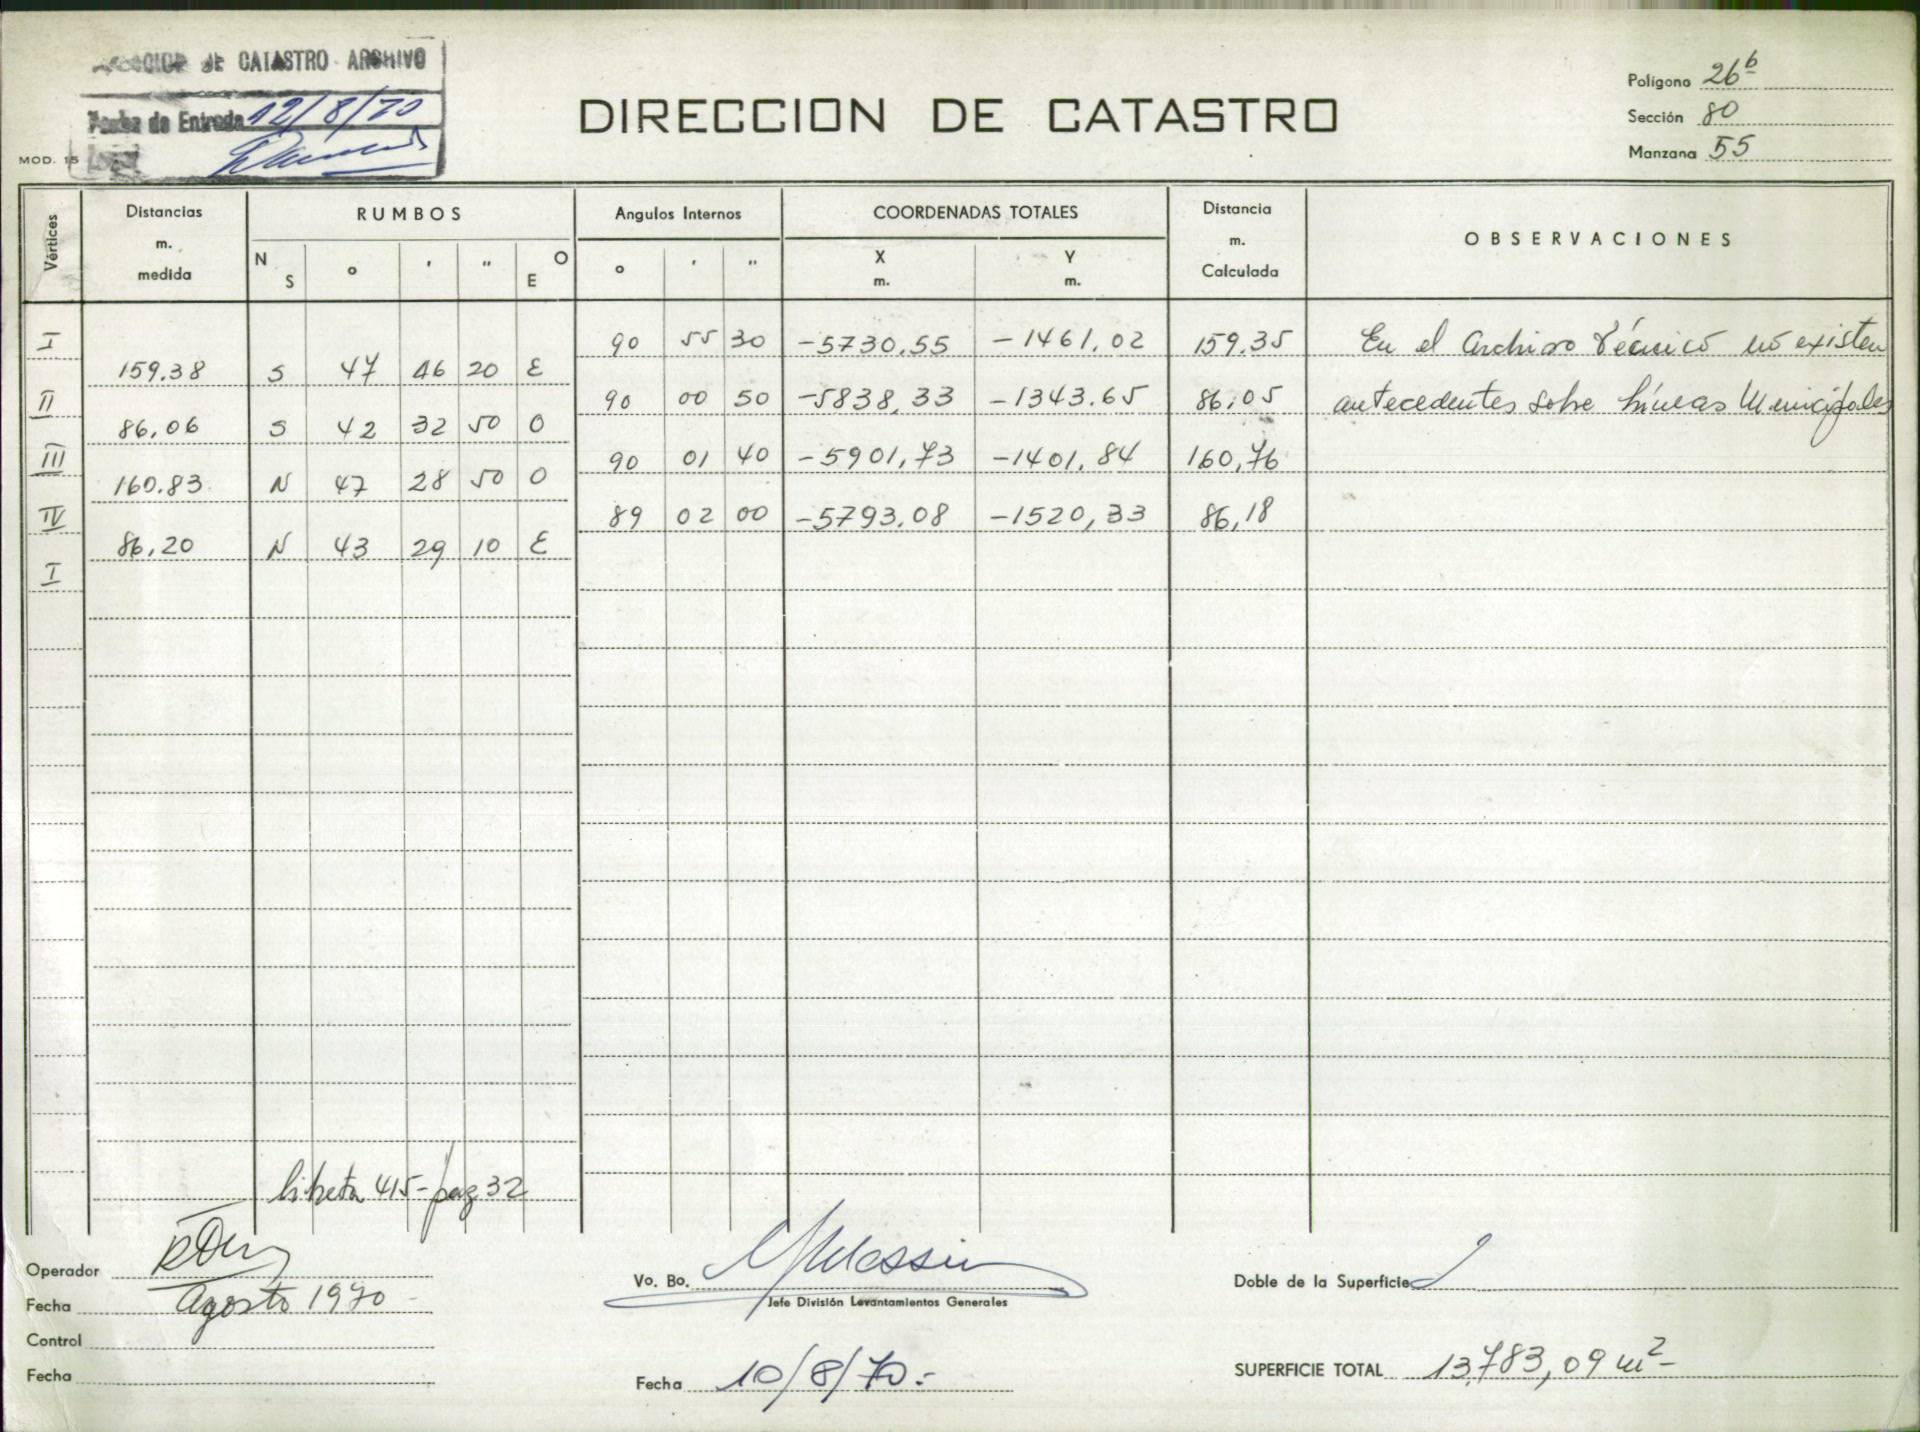 DIRECCION DE CATASTRO ARCHIVO
Fecha de Entrada 12/8/70
Legajo
MOD. 15
DIRECCION DE CATASTRO
Polígono 26ᵇ
Sección 80
Manzana 55
Vértices
Distancias m. medida
RUMBOS
Angulos Internos
COORDENADAS TOTALES
Distancia m. Calculada
OBSERVACIONES
N S ° ' " O E ° ' " X m. Y m.
I 90 55 30 -5730,55 -1461,02 159.35 En el Archivo Técnico no existen
159.38 S 47 46 20 E
II 90 00 50 -5838,33 -1343.65 86,05 antecedentes sobre Líneas Municipales
86,06 S 42 32 50 O
III 90 01 40 -5901,73 -1401,84 160,76
160.83 N 47 28 50 O
IV 89 02 00 -5793,08 -1520,33 86,18
86,20 N 43 29 10 E
I
libreta 415-pag 32
Operador
Fecha Agosto 1970
Control
Fecha
Vo. Bo.
Jefe División Levantamientos Generales
Fecha 10/8/70.-
Doble de la Superficie
SUPERFICIE TOTAL 13.783,09 m²-